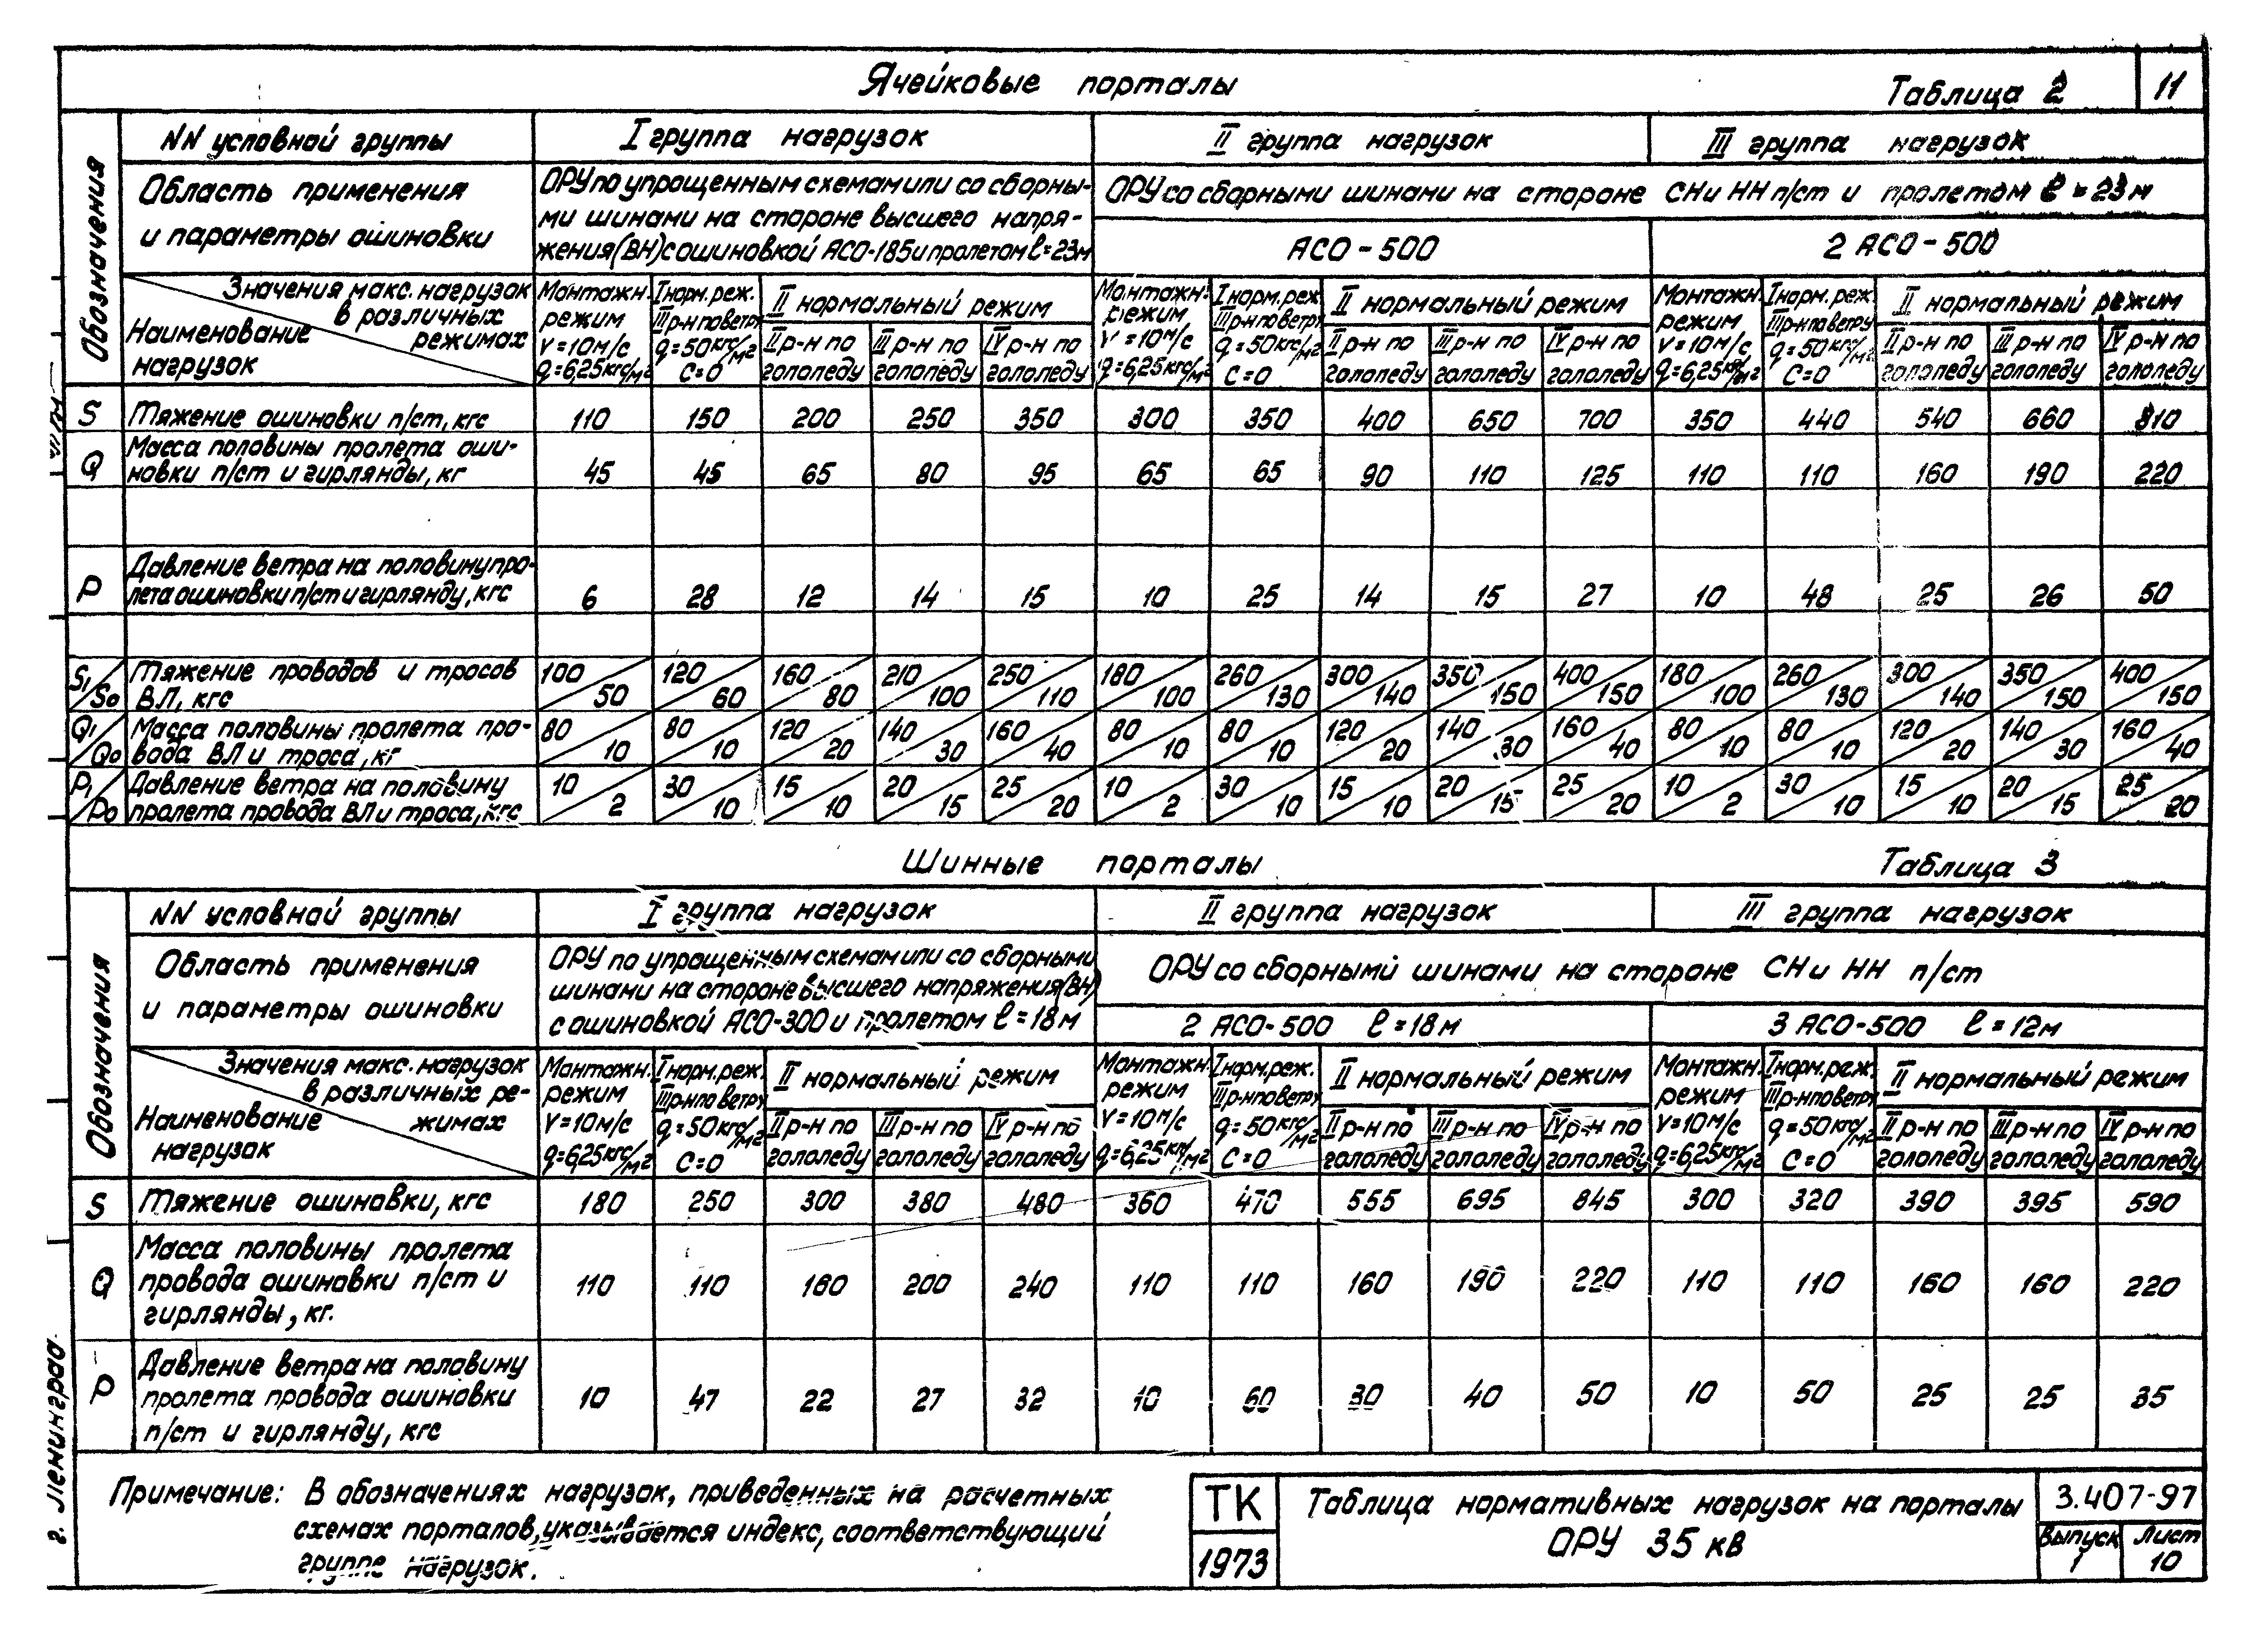 Ячейковые порталы Таблица 2 11
Обозначения
NN условной группы I группа нагрузок II группа нагрузок III группа нагрузок
Область применения и параметры ошиновки
ОРУ по упрощенным схемам или со сборны-
ми шинами на стороне высшего напря-
жения (ВН) с ошиновкой АСО-185 и пролетом ℓ=23м
ОРУ со сборными шинами на стороне СН и НН п/ст и пролетом ℓ=23м
АСО-500 2 АСО-500
Значения макс. нагрузок
в различных
режимах
Наименование
нагрузок
Монтажн. режим V=10м/с q=6,25кгс/м2
I норм. реж. III р-н по ветру q=50кгс/м2 C=0
II нормальный режим
II р-н по гололеду III р-н по гололеду IV р-н по гололеду
Монтажн. режим V=10м/с q=6,25кгс/м2
I норм. реж. III р-н по ветру q=50кгс/м2 C=0
II нормальный режим
II р-н по гололеду III р-н по гололеду IV р-н по гололеду
Монтажн. режим V=10м/с q=6,25кгс/м2
I норм. реж. III р-н по ветру q=50кгс/м2 C=0
II нормальный режим
II р-н по гололеду III р-н по гололеду IV р-н по гололеду
S Тяжение ошиновки п/ст, кгс 110 150 200 250 350 300 350 400 650 700 350 440 540 660 810
Q Масса половины пролета оши-
новки п/ст и гирлянды, кг 45 45 65 80 95 65 65 90 110 125 110 110 160 190 220
P Давление ветра на половину про-
лета ошиновки п/ст и гирлянду, кгс 6 28 12 14 15 10 25 14 15 27 10 48 25 26 50
S1/S0 Тяжение проводов и тросов
ВЛ, кгс 100/50 120/60 160/80 210/100 250/110 180/100 260/130 300/140 350/150 400/150 180/100 260/130 300/140 350/150 400/150
Q1/Q0 Масса половины пролета про-
вода ВЛ и троса, кг 80/10 80/10 120/20 140/30 160/40 80/10 80/10 120/20 140/30 160/40 80/10 80/10 120/20 140/30 160/40
P1/P0 Давление ветра на половину
пролета провода ВЛ и троса, кгс 10/2 30/10 15/10 20/15 25/20 10/2 30/10 15/10 20/15 25/20 10/2 30/10 15/10 20/15 25/20
Шинные порталы Таблица 3
Обозначения
NN условной группы I группа нагрузок II группа нагрузок III группа нагрузок
Область применения и параметры ошиновки
ОРУ по упрощенным схемам или со сборными
шинами на стороне высшего напряжения (ВН)
с ошиновкой АСО-300 и пролетом ℓ=18м
ОРУ со сборными шинами на стороне СН и НН п/ст
2 АСО-500 ℓ=18м 3 АСО-500 ℓ=12м
Значения макс. нагрузок
в различных ре-
жимах
Наименование
нагрузок
Монтажн. режим V=10м/с q=6,25кгс/м2
I норм. реж. III р-н по ветру q=50кгс/м2 C=0
II нормальный режим
II р-н по гололеду III р-н по гололеду IV р-н по гололеду
Монтажн. режим V=10м/с q=6,25кгс/м2
I норм. реж. III р-н по ветру q=50кгс/м2 C=0
II нормальный режим
II р-н по гололеду III р-н по гололеду IV р-н по гололеду
Монтажн. режим V=10м/с q=6,25кгс/м2
I норм. реж. III р-н по ветру q=50кгс/м2 C=0
II нормальный режим
II р-н по гололеду III р-н по гололеду IV р-н по гололеду
S Тяжение ошиновки, кгс 180 250 300 380 480 360 470 555 695 845 300 320 390 395 590
Q Масса половины пролета
провода ошиновки п/ст и
гирлянды, кг. 110 110 160 200 240 110 110 160 190 220 110 110 160 160 220
P Давление ветра на половину
пролета провода ошиновки
п/ст и гирлянду, кгс 10 47 22 27 32 10 60 30 40 50 10 50 25 25 35
г. Ленинград.
Примечание: В обозначениях нагрузок, приведенных на расчетных
схемах порталов, указывается индекс, соответствующий
группе нагрузок.
ТК
1973
Таблица нормативных нагрузок на порталы
ОРУ 35 кв
3.407-97
Выпуск 1
Лист 10